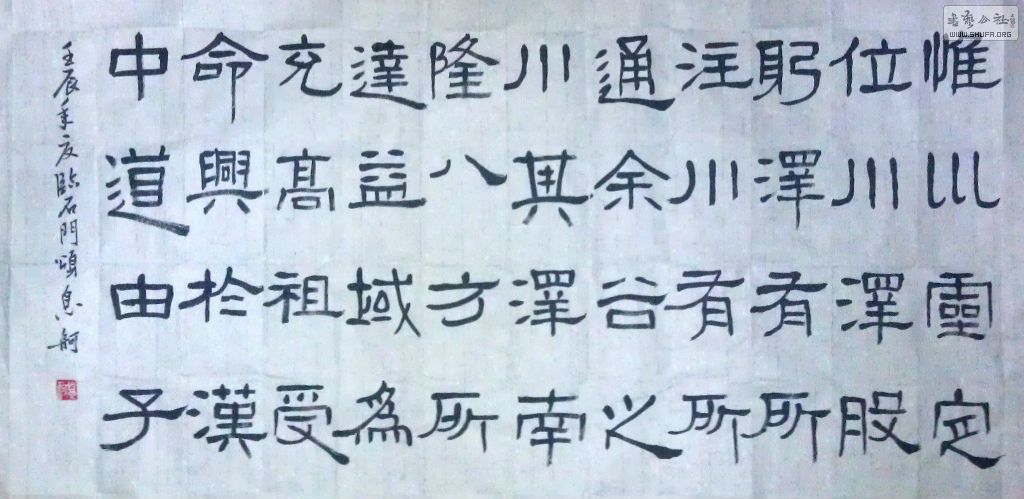 惟巛靈定
位川澤股
躬澤有所
注川有所
通余谷之
川其澤南
隆八方所
達益域為
充高祖受
命興於漢
中道由子
壬辰年夏臨石門頌息舸
書藝公社
WWW.SHUFA.ORG